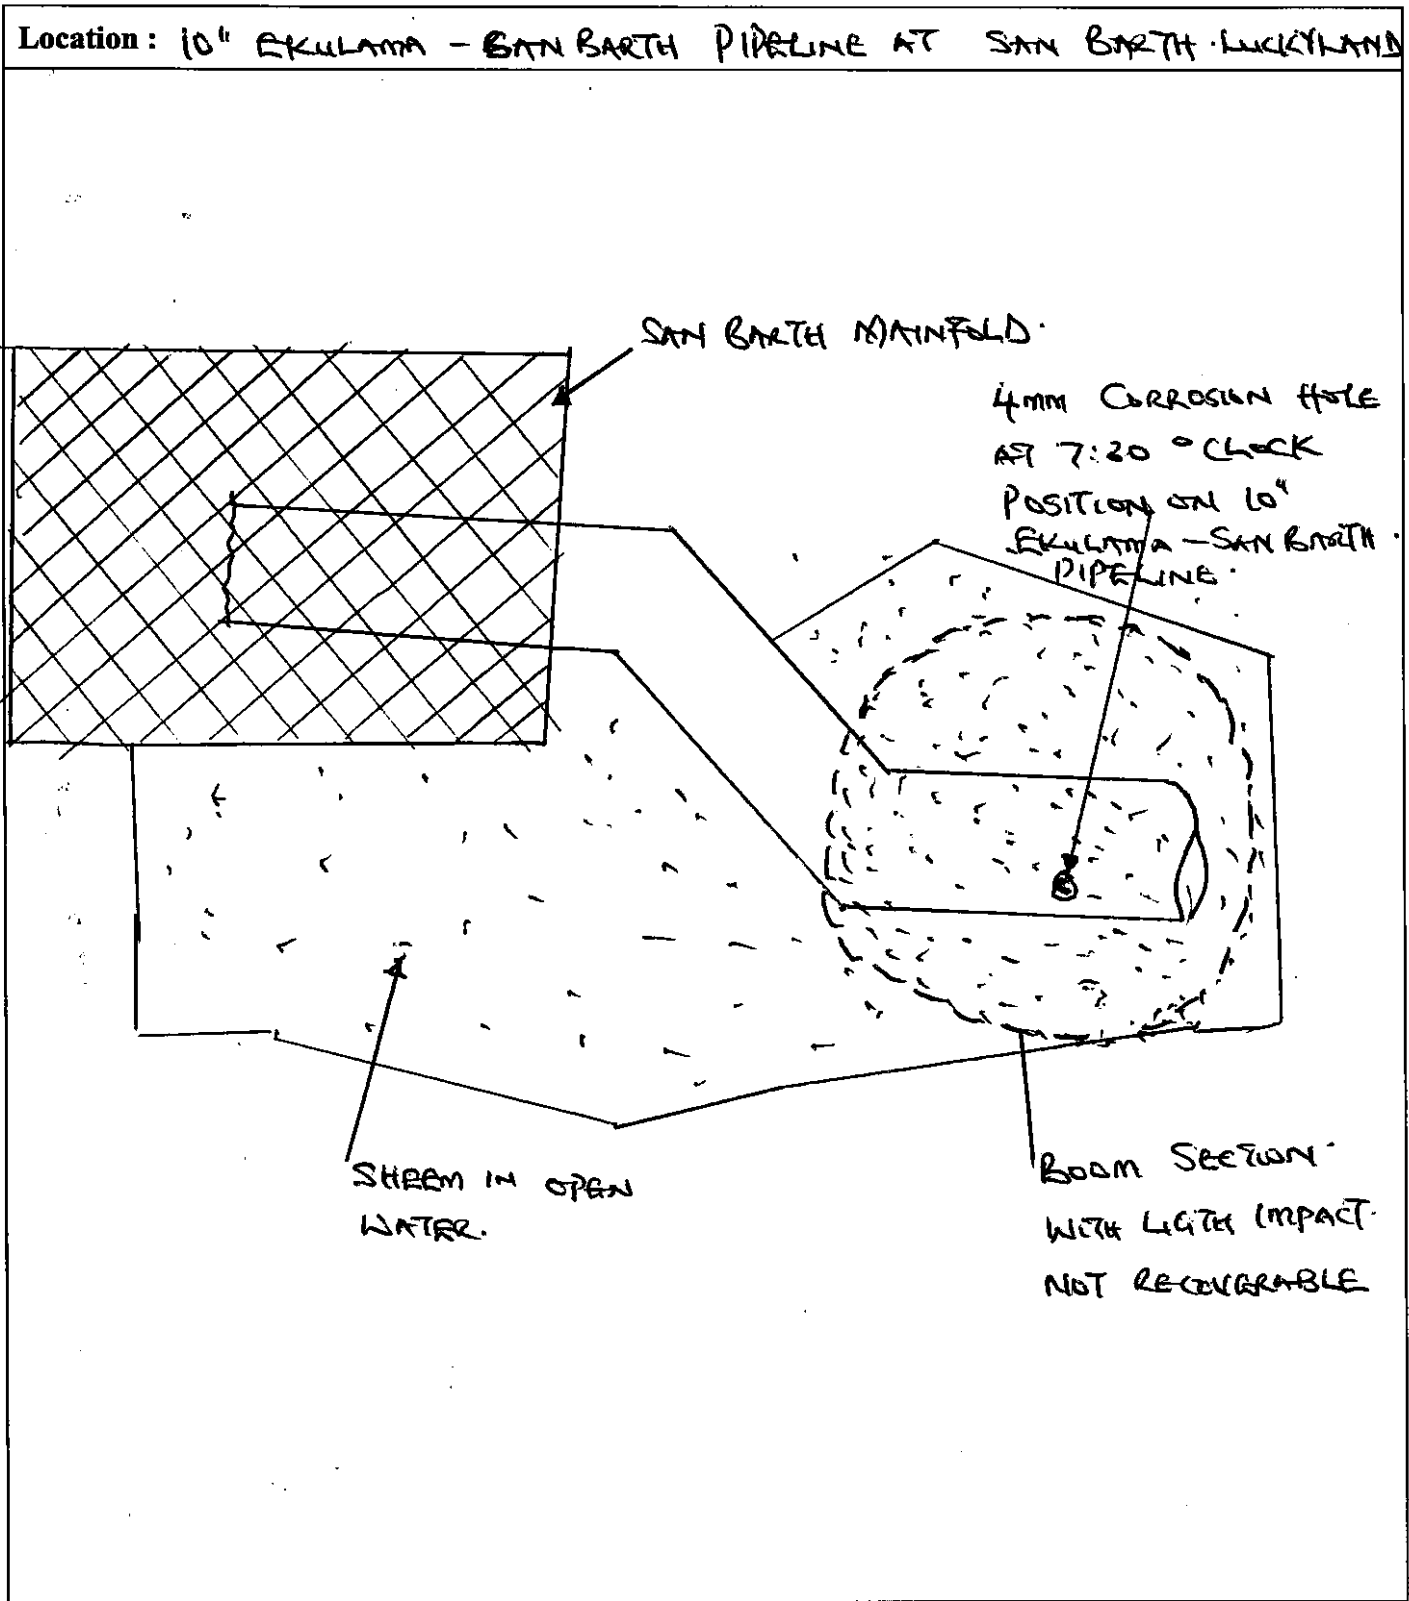 Location : 10" EKULAMA - SAN BARTH PIPELINE AT SAN BARTH. LUCKYLAND
SAN BARTH MAINFOLD.
4mm CORROSION HOLE
AT 7:30 O CLOCK
POSITION ON 10"
EKULAMA - SAN BARTH
PIPELINE.
SHEEM IN OPEN
WATER.
BOOM SECTION.
WITH LIGTH IMPACT.
NOT RECOVERABLE